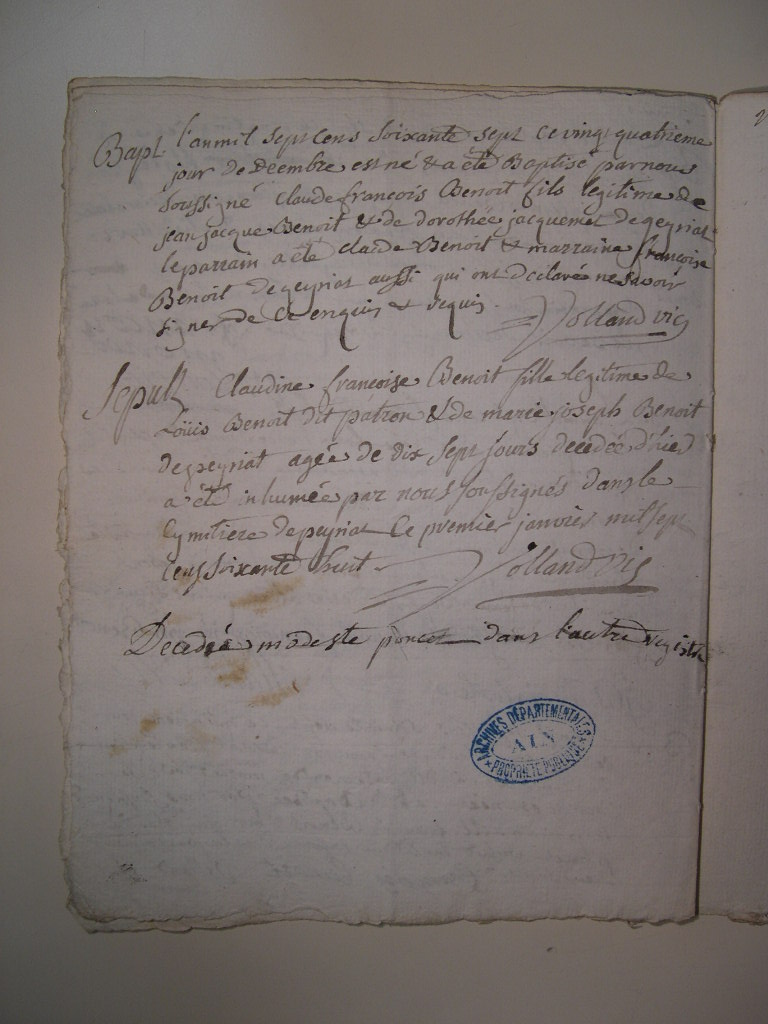 Bapt l'an mil sept cens soixante sept ce vingt quatrieme
jour de decembre est né & a été Baptisé par nous
soussigné Claude françois Benoit fils legitime de
jean jacque Benoit & de dorothée jacquemet de peyriat
le parrain a été claude Benoit & marraine françoise
Benoit de peyriat aussi qui ont declaré ne savoir
signer de ce enquis et requis
Jolland vic
Sepult Claudine françoise Benoit fille legitime de
Loüis Benoit dit patron & de marie joseph Benoit
de peyriat agée de dix sept jours decedée d'hier
a été inhumée par nous soussignés dans le
Cymitiere de peyriat Ce premier janvier mil sept
cens soixante huit
Jolland vic
Decedié modeste poncet dans l'autre registre
ARCHINES DÉPARTEMENTALES
AIN
PROPRIÉTÉ PUBLIQUE